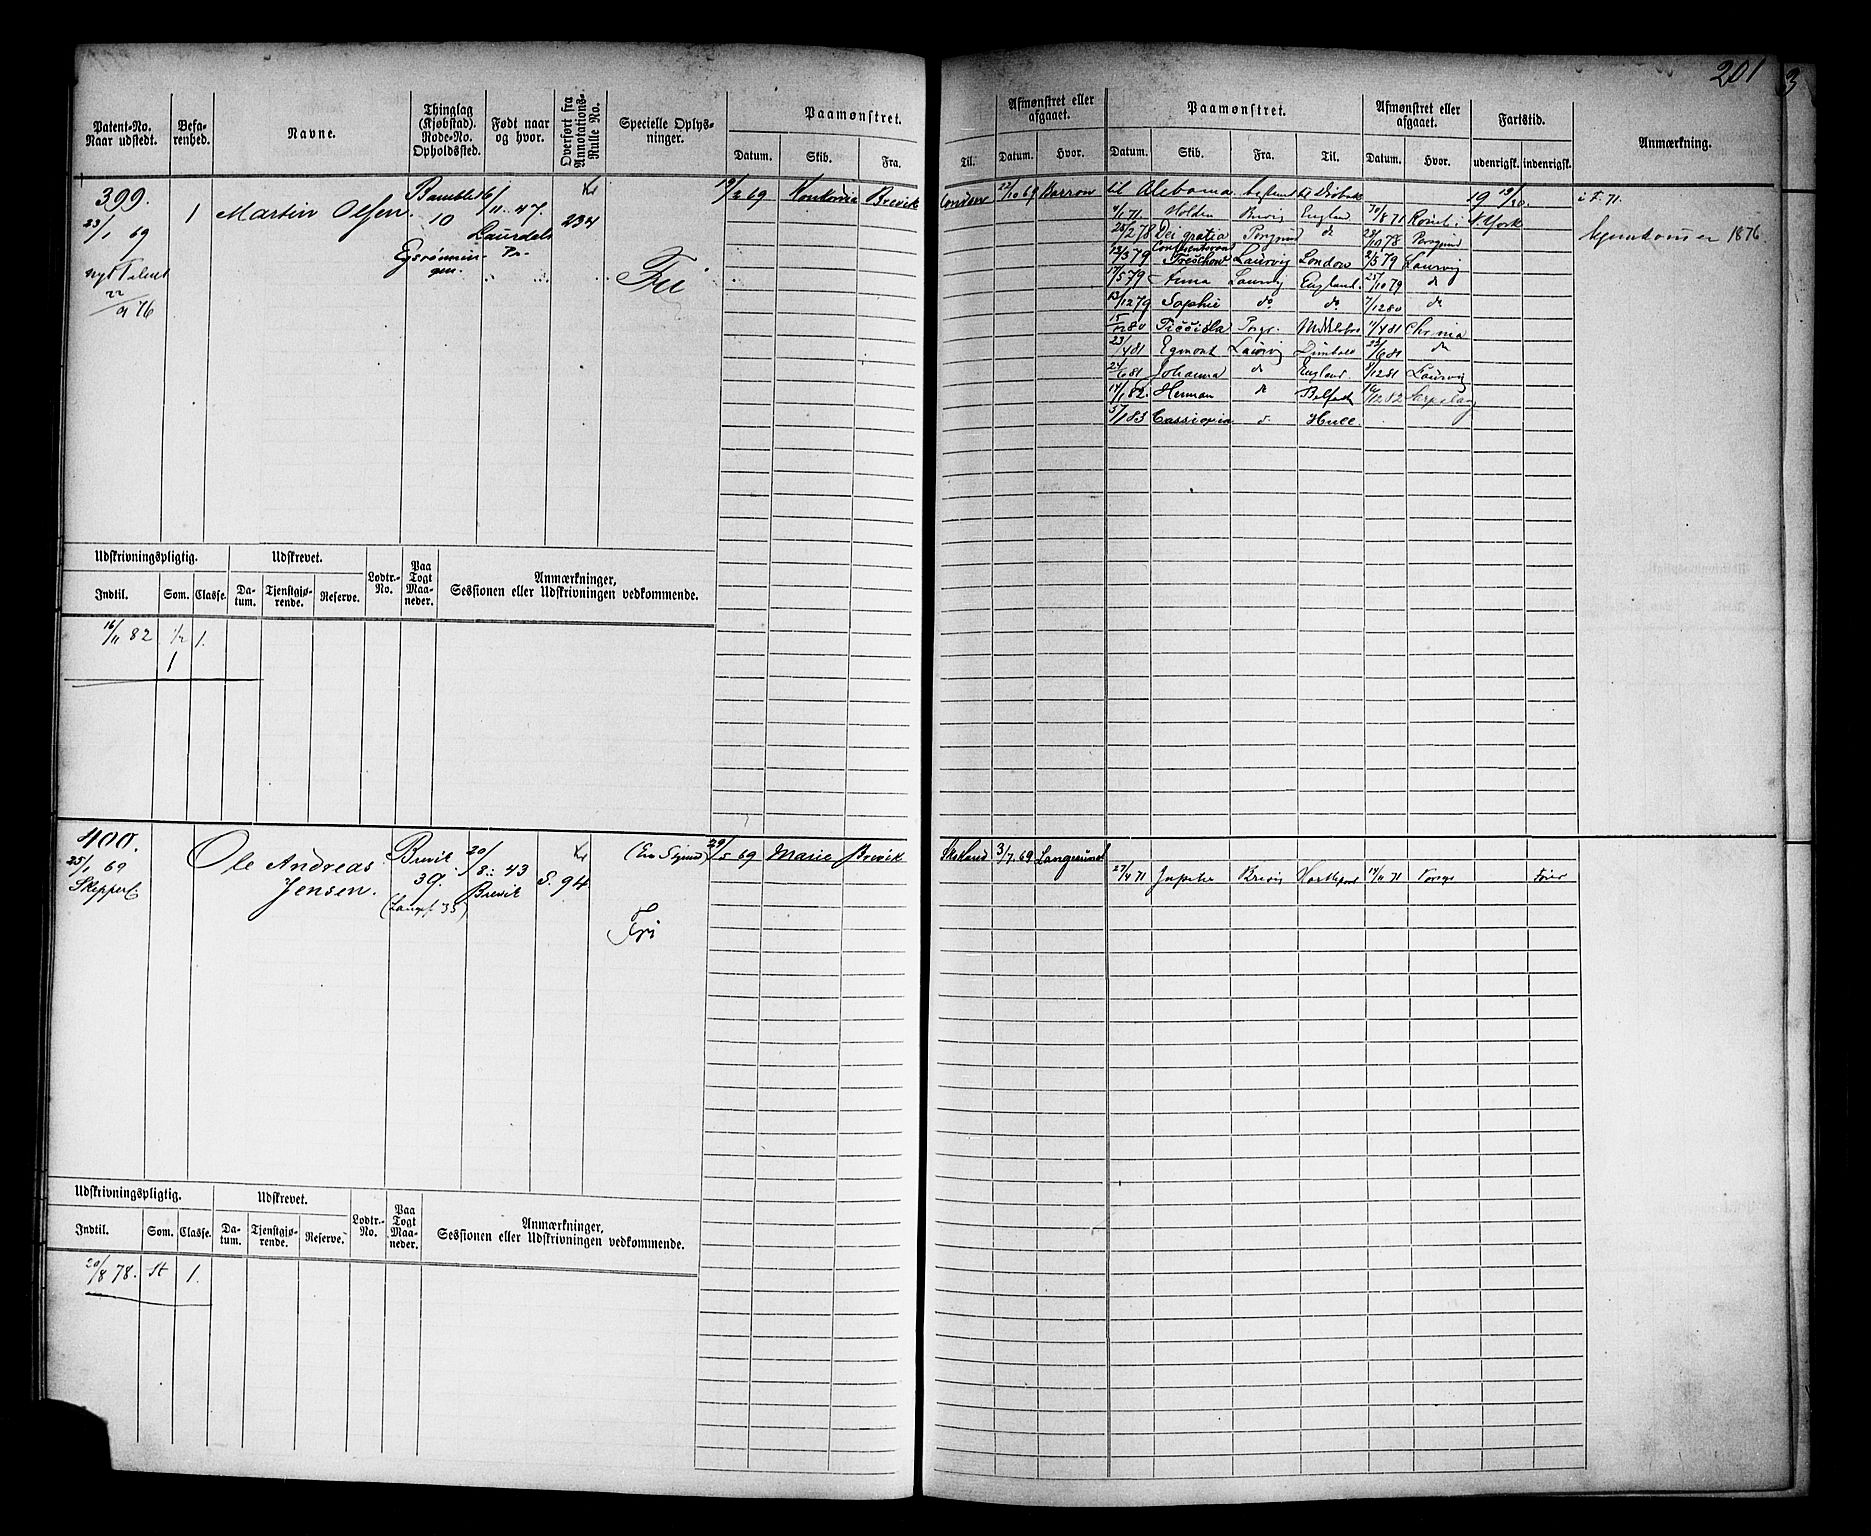 201
3
Patent-No. Naar udstedt.
Befarenhed.
Navne.
Thinglag (Kjøbstad). Rode-No. Opholdssted.
Født naar og hvor.
Overført fra Annotations-Rulle No.
Specielle Oplysninger.
Paamønstret.
Datum. Skib. Fra.
Til.
Afmønstret eller afgaaet.
Datum. Hvor.
Paamønstret.
Datum. Skib. Fra. Til.
Afmønstret eller afgaaet.
Datum. Hvor.
Fartstid.
udenrigsk. indenrigsk.
Anmærkning.
399.
23/1 69
22/9 76
1
Martin Olsen.
Bamble
10
6/11 47.
234
Fri
19/2 69 Brevik
London 22/10 69 Barrow
til Alabama
19 19/30.
i F. 71.
4/1 71 Holden England 30/8 71 N. York
Hjemkommer 1876.
25/2 78 Dei gratia Porsgrund do 28/10 78 Porsgrund
13/3 79 Treschow Laurvig London 21/5 79 Laurvig
17/5 79 Anna Laurvig England. 25/10 79 do
13/12 79 Sophie do do 7/12 80 do
15/12 80 Porsgr. 11/4 81 Chrnia
23/4 81 Egmont Laurvig 22/6 81 do
24/6 81 Johanna do England. 9/12 81 Laurvig
14/1 82. Herman do Belfast 16/12 82
5/1 83 Cassiopeia d. Hull.
Udskrivningspligtig.
Udskrevet.
Lodtr.-No.
Paa Togt Maaneder.
Anmærkninger, Sessionen eller Udskrivningen vedkommende.
Indtil. Som. Classe. Datum. Tjenstgjørende. Reserve.
16/11 82 1/2 1.
1
400.
25/1 69
Ole Andreas Jensen.
Brevik
39.
(Langes. 35)
20/8 43
Brevik
S. 94
Fri
29/5 69 Marie Brevik
3/7 69 Langesund
27/4 71 Jupiter Brevig 14/11 71
Udskrivningspligtig.
Udskrevet.
Lodtr.-No.
Paa Togt Maaneder.
Anmærkninger, Sessionen eller Udskrivningen vedkommende.
Indtil. Som. Classe. Datum. Tjenstgjørende. Reserve.
20/8 78. St 1.